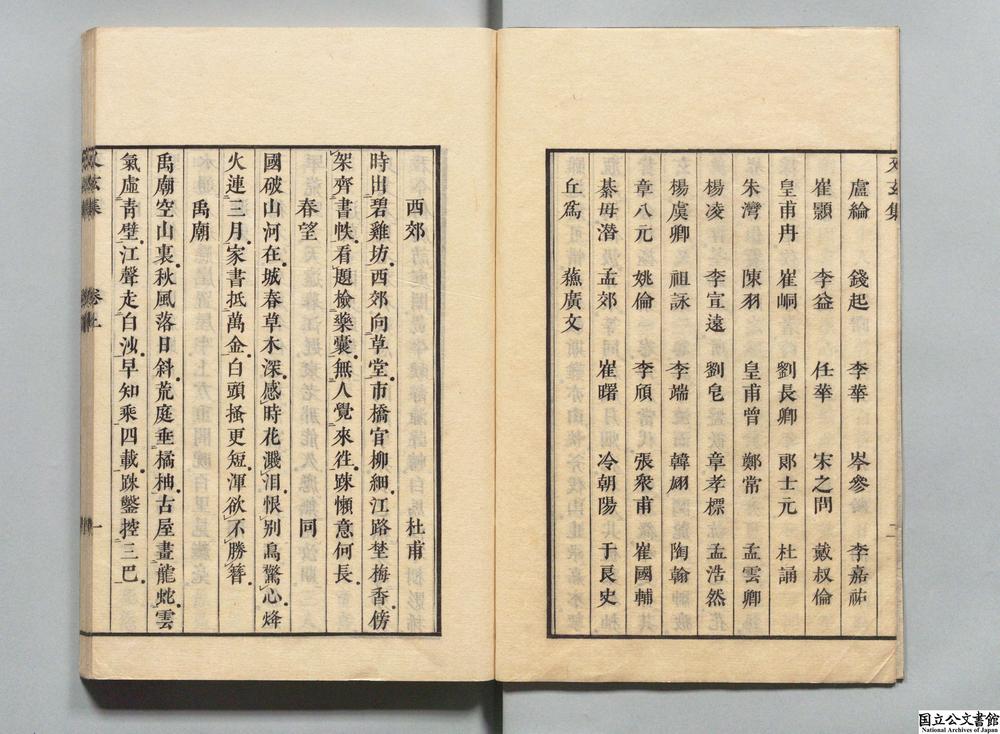 又玄集
盧綸 錢起 李華 岑參 李嘉祐
崔顥 李益 任華 宋之問 戴叔倫
皇甫冉 崔峒 劉長卿 郎士元 杜誦
朱灣 陳羽 皇甫曾 鄭常 孟雲卿
楊凌 李宣遠 劉皂 章孝標 孟浩然
楊虞卿 祖詠 李端 韓翃 陶翰
章八元 姚倫 李頎 張衆甫 崔國輔
綦毋潛 孟郊 崔曙 冷朝陽 于良史
丘爲 蘓廣文
二
西郊 杜甫
時出碧雞坊西郊向草堂市橋官柳細江路埜梅香傍
架齊書帙看題檢藥囊無人覺來徃踈懶意何長
春望 同
國破山河在城春草木深感時花濺泪恨别鳥驚心烽
火連三月家書抵萬金白頭搔更短渾欲不勝簪
禹廟
禹廟空山裏秋風落日斜荒庭垂橘柚古屋畫龍蛇雲
氣虛青壁江聲走白沙早知乘四載踈鑿控三巴
又玄集 卷上 一
国立公文書館
National Archives of Japan